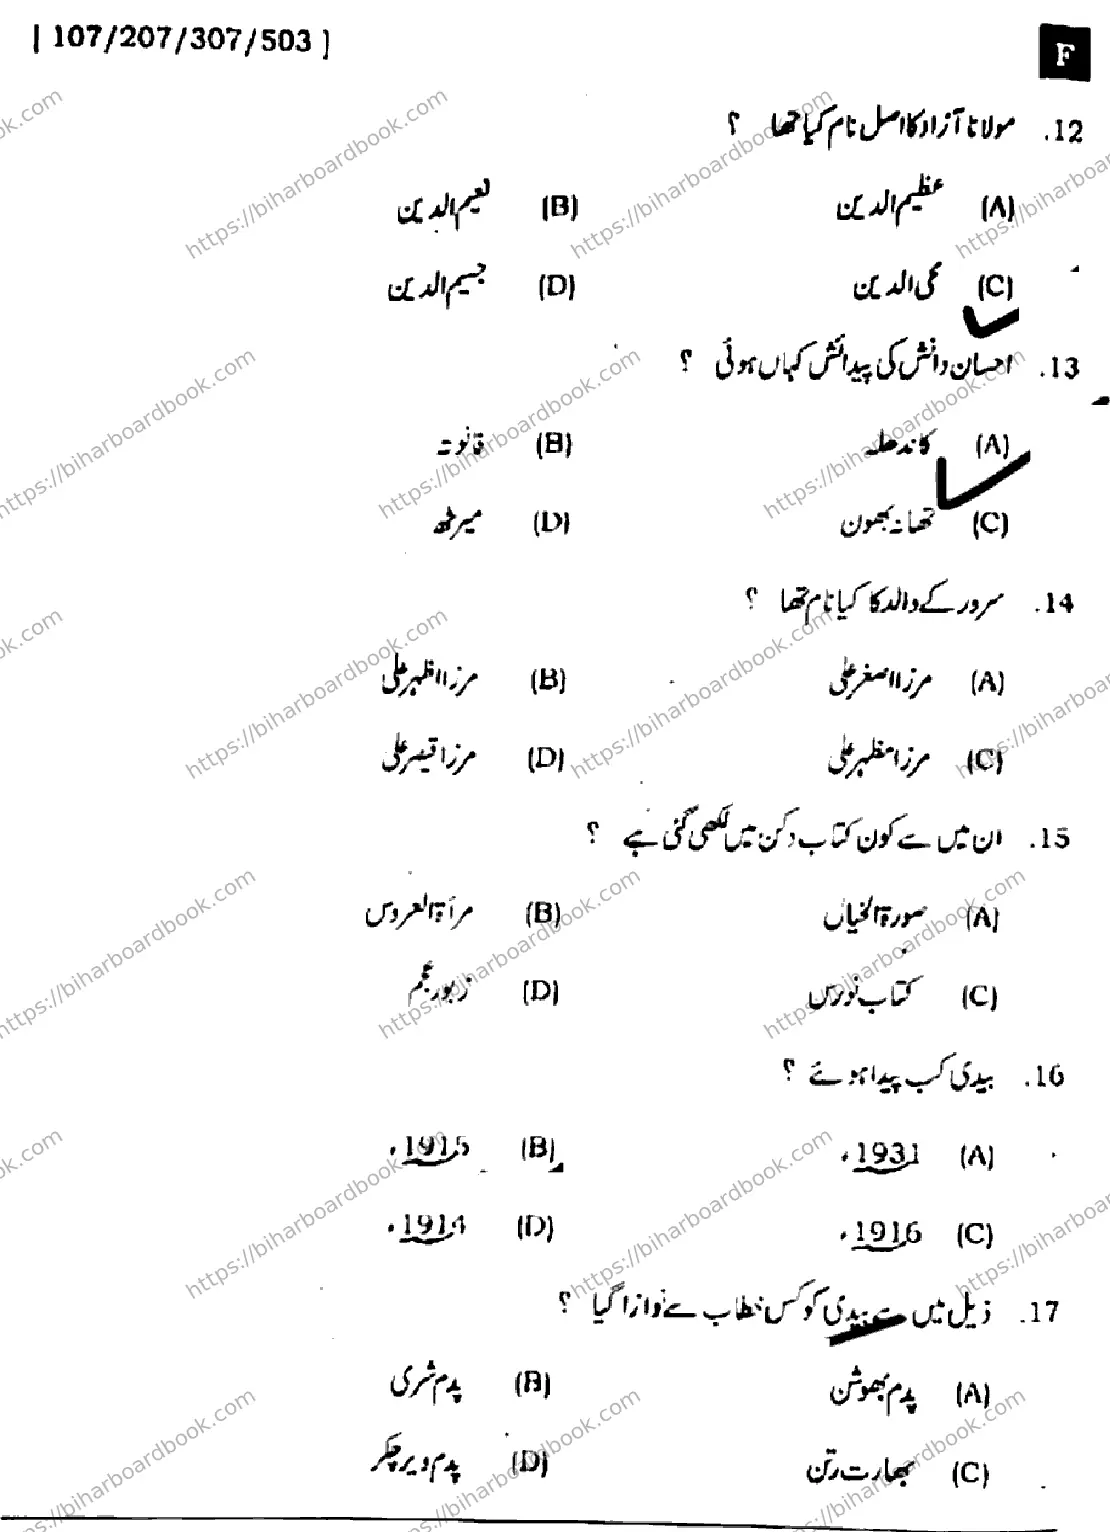 [ 107/207/307/503 ]
F
12. مولانا آزاد کا اصل نام کیا تھا ؟
(A) عظیم الدین (B) نعیم الدین
(C) محی الدین (D) جسیم الدین
13. احسان دانش کی پیدائش کہاں ہوئی ؟
(A) کاندھلہ (B) قانوتہ
(C) تھانہ بھون (D) میرٹھ
14. سرور کے والد کا کیا نام تھا ؟
(A) مرزا اصغر علی (B) مرزا اظہر علی
(C) مرزا مظہر علی (D) مرزا قیصر علی
15. ان میں سے کون کتاب دکن میں لکھی گئی ہے ؟
(A) صورۃ الخیال (B) مرأۃ العروس
(C) کتاب نورس (D) زبور عجم
16. بیدی کب پیدا ہوئے ؟
(A) 1931ء (B) 1915ء
(C) 1916ء (D) 1914ء
17. ذیل میں سے بیدی کو کس خطاب سے نوازا گیا ؟
(A) پدم بھوشن (B) پدم شری
(C) بھارت رتن (D) پدم ویر چکر
https://biharboardbook.com